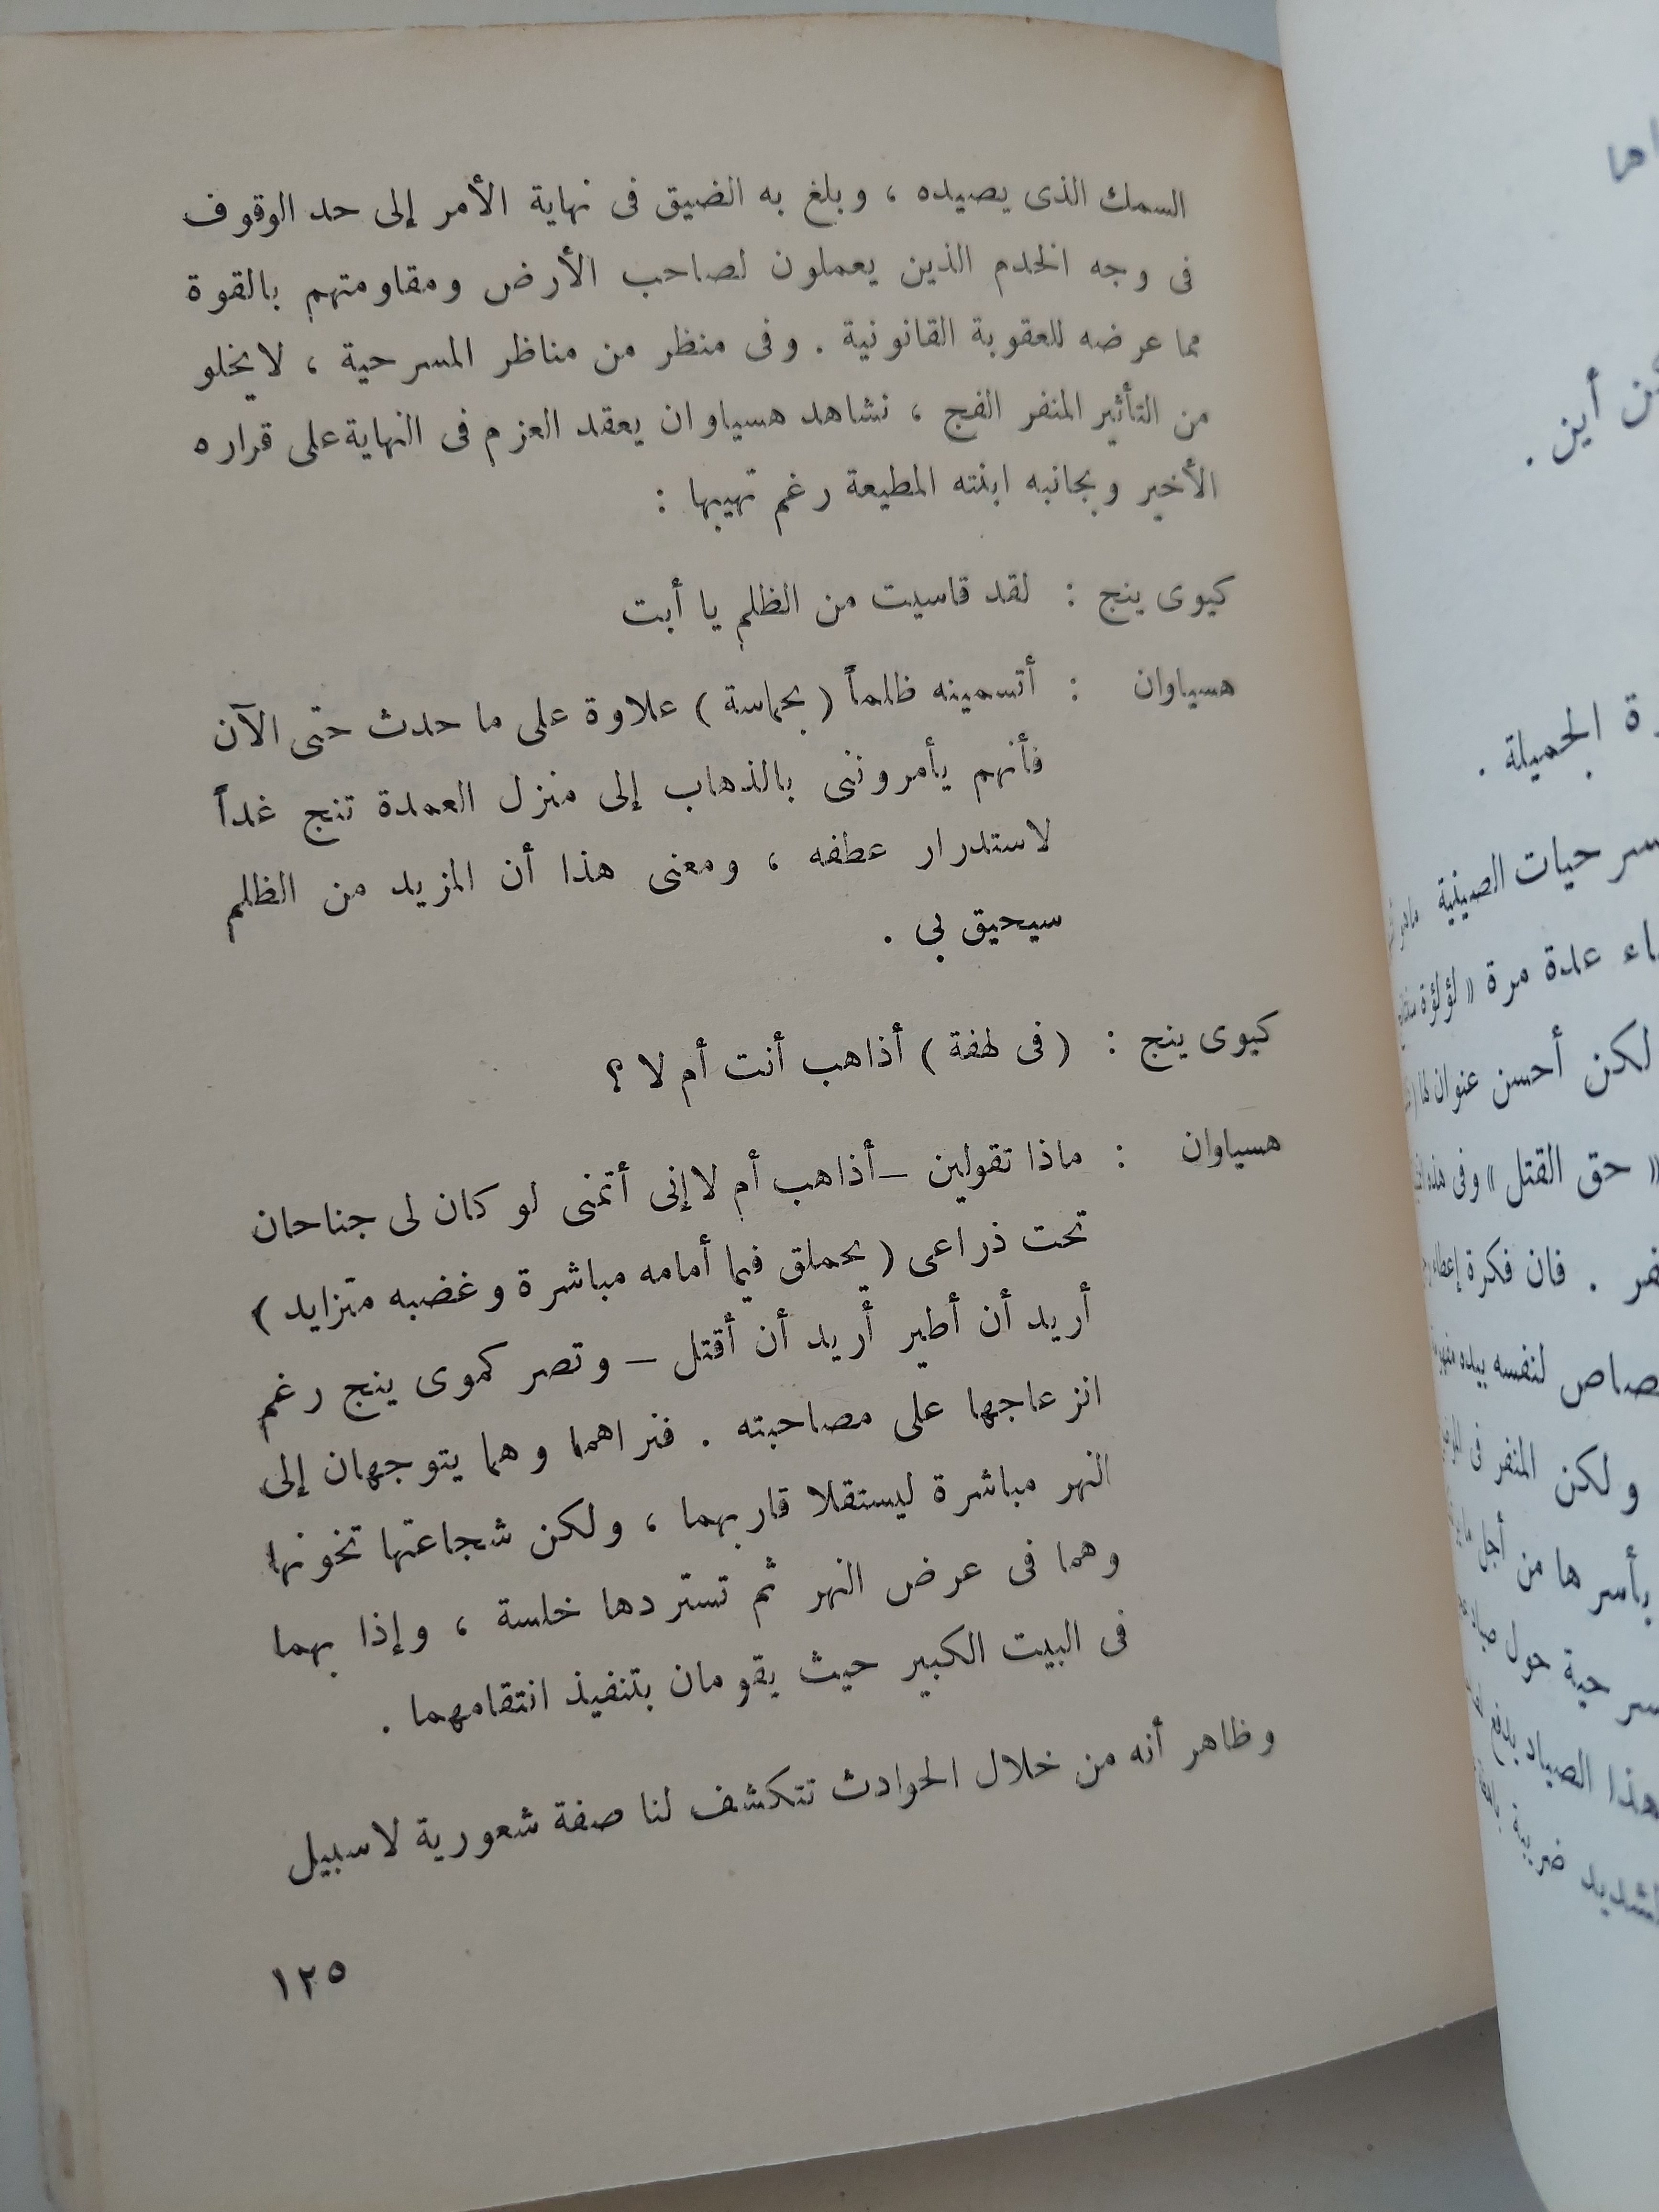 السمك الذى يصيده ، وبلغ به الضيق فى نهاية الأمر إلى حد الوقوف
فى وجه الخدم الذين يعملون لصاحب الأرض ومقاومتهم بالقوة
مما عرضه للعقوبة القانونية . وفى منظر من مناظر المسرحية ، لايخلو
من التأثير المنفر الفج ، نشاهد هسياوان يعقد العزم فى النهاية على قراره
الأخير وبجانبه ابنته المطيعة رغم تهيبها :
كيوى ينج : لقد قاسيت من الظلم يا أبت
هسياوان : أتسمينه ظلماً ( بحماسة ) علاوة على ما حدث حتى الآن
فأنهم يأمروننى بالذهاب إلى منزل العمدة تنج غداً
لاستدرار عطفه ، ومعنى هذا أن المزيد من الظلم
سيحيق بى .
كيوى ينج : ( فى لهفة ) أذاهب أنت أم لا ؟
هسياوان : ماذا تقولين – أذاهب أم لا إنى أتمنى لو كان لى جناحان
تحت ذراعى ( يحملق فيما أمامه مباشرة وغضبه متزايد )
أريد أن أطير أُريد أن أقتل – وتصر كموى ينج رغم
انزعاجها على مصاحبته . فنراهما وهما يتوجهان إلى
النهر مباشرة ليستقلا قاربهما ، ولكن شجاعتها تخونها
وهما فى عرض النهر ثم تستردها خلسة ، وإذا بهما
فى البيت الكبير حيث يقومان بتنفيذ انتقامهما .
وظاهر أنه من خلال الحوادث تتكشف لنا صفة شعورية لاسبيل
١٢٥
أين .
الجميلة .
حيات الصينية
عدة مرة « لؤلؤة
لكن أحسن عنوان لها
« حق القتل » وفى هذه
. فان فكرة إعطاء
لنفسه بيده
ولكن المنفر فى
بأسرها من أجل
حول
هذا الصياد بدفع
ضريبة